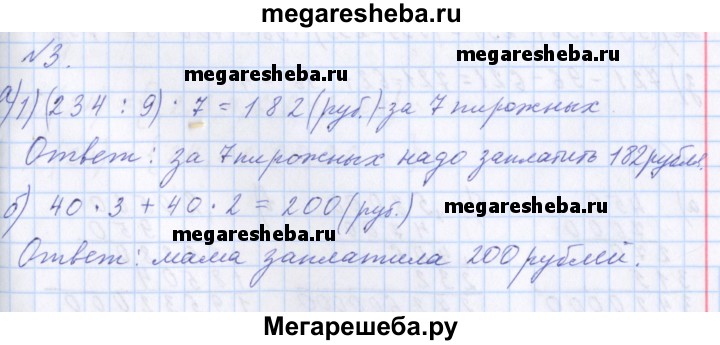 megaresheba.ru
№3.
megaresheba.ru
а) 1) (234 : 9) · 7 = 182 (руб.) - за 7 пирожных
Ответ: за 7 пирожных надо заплатить 182 рубля.
б) 40 · 3 + 40 · 2 = 200 (руб.)
megaresheba.ru
megaresheba.ru
Ответ: мама заплатила 200 рублей.
Мегарешеба.ру